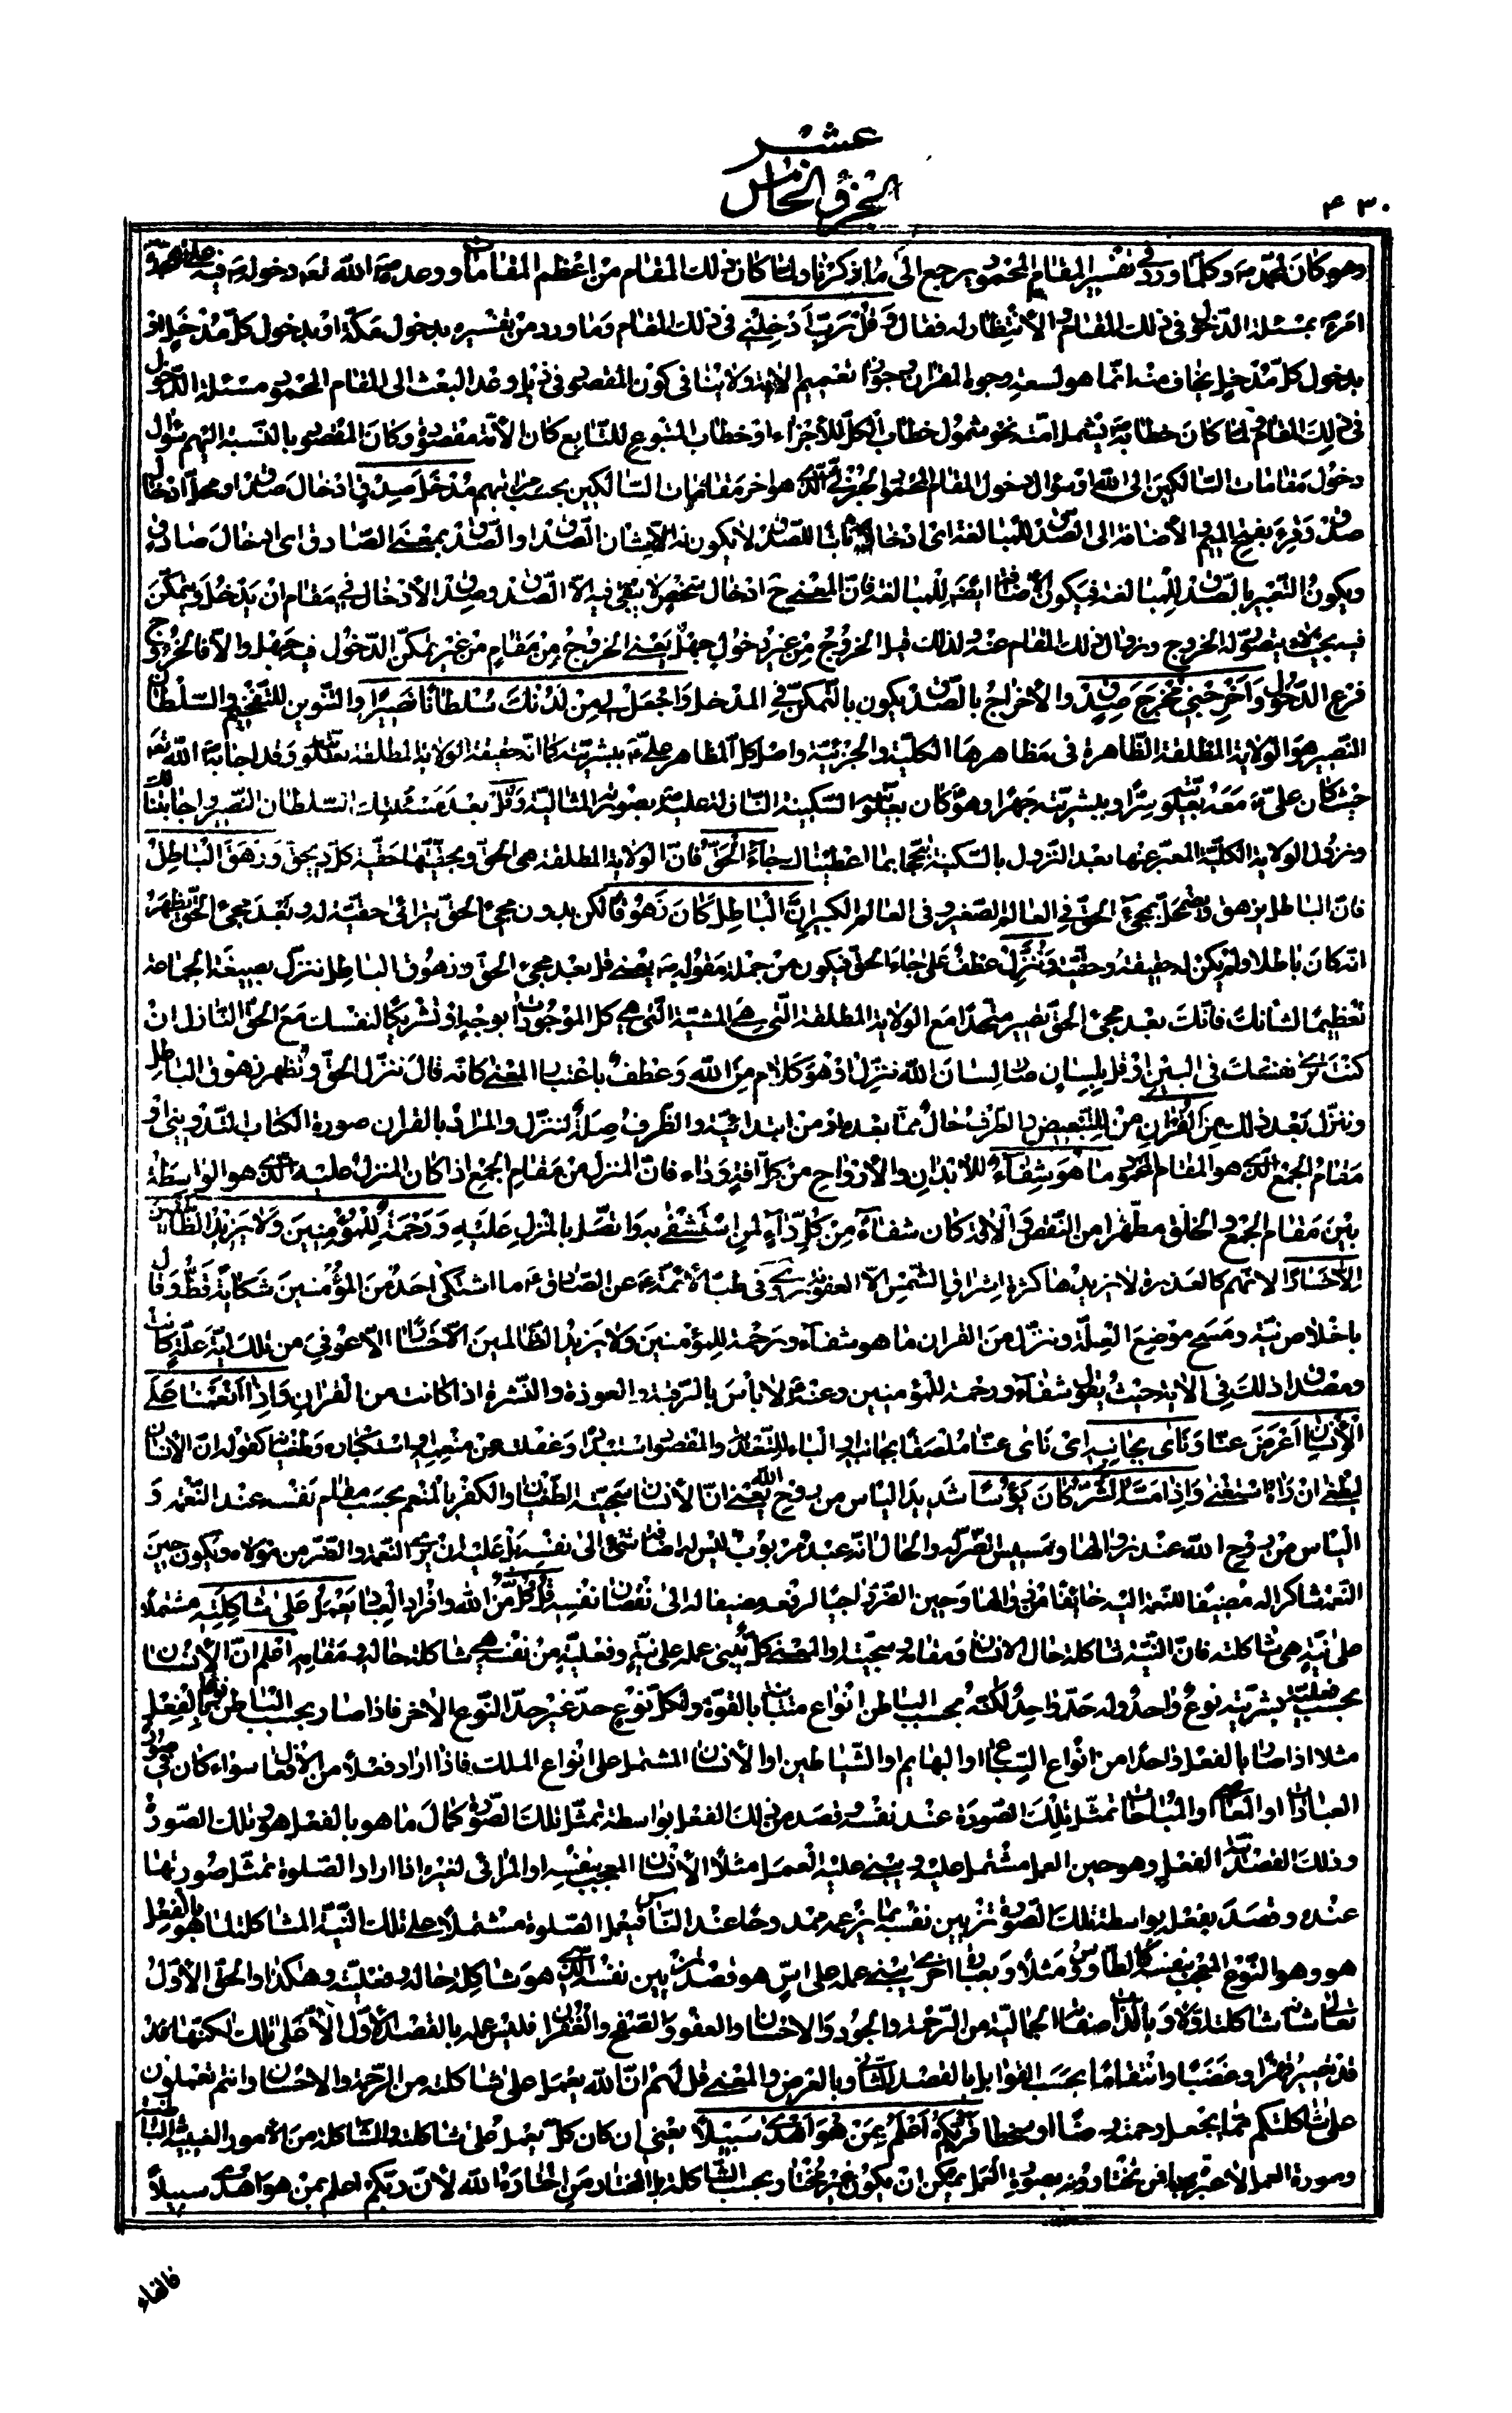 عشر
الجزو الخامس
۴۳۰
وهو كان لمحمد ص وكلما ورد فى تفسير المقام المحمود يرجع الى ما ذكرنا ولما كان ذلك المقام من اعظم المقامات ووعده الله تعالى دخوله فيه
امره بمسئلة الدخول فى ذلك المقام والانتظار له فقال وَقُلْ رَبِّ اَدْخِلْنى فى ذلك المقام وما ورد من تفسيره بدخول مكة او بدخول كل مدخل او
بدخول كل مدخل يخاف منه انما هو لسعة وجوه القران وجواز تعميم الاية ولا ينافى كون المقصود فى ذيل وعد البعث الى المقام المحمود مسئلة الدخول
فى ذلك المقام ولما كان خطابه ص يشمل امته نحو شمول خطاب الكل للاجزاء او خطاب المتبوع للتابع كان الامة مقصودة وكان المقصود بالنسبة اليهم سؤال
دخول مقامات السالكين الى الله او سؤال دخول المقام المحمود الجزئى الذى هو اخر مقامات السالكين بحسب مراتبهم مُدْخَلَ صِدْقٍ ادخال صدق او محل ادخال
صدق وقرء بفتح الميم والاضافة الى الصدق للمبالغة اى ادخالا ثابتا للصدق لا يكون له الا شان الصدق او الصدق بمعنى الصادق اى ادخال صادق
ويكون التعبير بالصدق للمبالغة فيكون الاضافة ايضا للمبالغة فان المعنى ح ادخال شخص لا يبقى فيه الا الصدق وصدق الادخال فى مقام ان يدخل ويتمكن
فيه بحيث لا يتصور له الخروج وزوال ذلك المقام عنه ولذلك قيل الخروج من غير دخول جهل يعنى الخروج من مقام من غير تمكن الدخول فيه جهل والا فالخروج
فرع الدخول وَاَخْرِجْنى مُخْرَجَ صِدْقٍ والاخراج بالصدق يكون بالتمكن فى المدخل وَاجْعَلْ لى مِنْ لَدُنْكَ سُلْطانًا نَصيرًا والتنوين للتفخيم والسلطان
النصير هو الولاية المطلقة الظاهرة فى مظاهرها الكلية والجزئية واصل كل المظاهر على ع ببشريته كما انه حقيقة الولاية المطلقة بعلويته وقد اجابه الله تعالى
حيث كان على ع معه بعلويته سرا وببشريته جهرا وهو كان بعلويته السكينة النازلة عليه بصورته المثالية وَقُلْ بعد مسئلتك السلطان النصير واجابتنا لك
ونزول الولاية الكلية المعبر عنها بعد النزول بالسكينة تبجحا بما اعطيناك جاءَ الْحَقُّ فان الولاية المطلقة هى الحق وبحقيتها حقية كل ذى حق وَزَهَقَ الْباطِلُ
فان الباطل يزهق ويضمحل بمجىء الحق فى العالم الصغير وفى العالم الكبير اِنَّ الْباطِلَ كانَ زَهُوقًا لكن بدون مجىء الحق يترائى حقيته له وبعد مجىء الحق يظهر
انه كان باطلا ولم يكن له حقيقة وحقية وَنُنَزِّلُ عطف على جاء الحق فيكون من جملة مقوله ص يعنى قل بعد مجىء الحق وزهوق الباطل ننزل بصيغة الجماعة
تعظيما لشانك فانك بعد مجىء الحق تصير متحدا مع الولاية المطلقة التى هى المشية التى هى كل الموجودات بوجه او تشريكا لنفسك مع الحق النازل ان
كنت ترى نفسك فى البين او قل بلسان صار لسان الله ننزل او هو كلام من الله وعطف باعتبار المعنى كانه قال ننزل الحق ونظهر زهوق الباطل
وننزل بعد ذلك مِنَ الْقُرْانِ من للتبعيض والظرف حال مما بعده او من ابتدائية والظرف صلة ننزل والمراد بالقران صورة الكتاب التدوينى او
مقام الجمع الذى هو المقام المحمود ما هُوَ شِفاءٌ للابدان والارواح من كل افة وداء فان المنزل من مقام الجمع اذا كان المنزل عليه الذى هو الواسطة
بين مقام الجمع والخلق مطهرا من النقص والافة كان شفاء من كل داء لمن استشفى به واتصل بالمنزل عليه وَرَحْمَةٌ لِلْمُؤْمِنينَ وَلا يَزيدُ الظّالِمينَ
اِلّا خَسارًا لانهم كالعذرة لا يزيدها كثرة اشراق الشمس الا العفونة روى فى طب الائمة ع عن الصادق ع ما اشتكى احد من المؤمنين شكاية قط وقال
باخلاص نية ومسح موضع العلة وننزل من القران ما هو شفاء ورحمة للمؤمنين ولا يزيد الظالمين الا خسارا الا عوفى من تلك العلة اية علة كانت
ومصداق ذلك فى الاية حيث يقول شفاء ورحمة للمؤمنين وعنه ع لا باس بالرقية والعوذة والنشرة اذا كانت من القران وَاِذا اَنْعَمْنا عَلَى
الْاِنْسانِ اَعْرَضَ عنا وَنَاى بِجانِبِهِ اى ناى عنا ملصقا بجانبه او الباء للتعدية والمقصود استبداده وغفلته عن منعمه واستكباره وطغيانه كقوله ان الانسان
ليطغى ان راه استغنى وَاِذا مَسَّهُ الشَّرُّ كانَ يَؤُسًا شديد الياس من روح الله يعنى ان الانسان سجيته الطغيان والكفر بالمنعم بحسب مقام نفسه عند النعمة و
الياس من روح الله عند زوالها ومسيس الضر له والحال انه عبد مربوب ليس له اضافة شىء الى نفسه بل عليه ان يرى النعمة والضر من مولاه ويكون حين
النعمة شاكرا له مضيفا للنعمة اليه خائفا من زوالها وحين الضر لاجيا لرفعه مضيفا له الى نقصان نفسه قُلْ كُلٌّ من الله وافراد العباد يَعْمَلُ عَلى شاكِلَتِهِ مشتملا
على نية هى شاكلته فان النية شاكلة حال الانسان ومقامه وسجيته والمعنى كل يبنى عمله على نية وفعلية من نفسه هى شاكلة حاله ومقامه اعلم ان الانسان
بحسب فعلية بشريته نوع واحد وله حد واحد لكنه بحسب الباطن انواع متباينة بالقوة ولكل نوع حد غير حد النوع الاخر فاذا صار بحسب الباطن نوعا بالفعل
مثلا اذا صار بالفعل واحدا من انواع السباع او البهايم او الشياطين او الانسان المشتمل على انواع الملك فاذا اراد فعلا من الافعال سواء كان فى صورة
العبادات او المعاصى او المباحات تمثل تلك الصورة عند نفسه وقصد من ذلك الفعل بواسطة تمثل تلك الصورة كمال ما هو بالفعل هو وتلك الصورة
وذلك القصد نية الفعل وهو حين العمل مشتمل عليه ويبنى عليه العمل مثلا الانسان المعجب بنفسه او المرائى لغيره اذا اراد الصلوة تمثل صورتها
عنده وقصد بفعله بواسطة تلك الصورة تزيين نفسه بما يزعمه ممدوحا عند الناس فيعمل الصلوة مشتملا على تلك النية المشاكلة لما هو بالفعل
هو وهو النوع المعجب بنفسه كالطاوس مثلا وبعبارة اخرى يبنى عمله على اس هو قصد تزيين نفسه الذى هو شاكلة حاله وفعليته وهكذا والحق الاول
تعالى شانه شاكلته اولا وبالذات صفاته الجمالية من الرحمة والجود والاحسان والعفو والصفح والغفران فليس عمله بالقصد الاول الا على تلك لكنها
قد تصير قهرا وغضبا وانتقاما بحسب القوابل بالقصد الثانى وبالعرض والمعنى قل لهم ان الله يعمل على شاكلته من الرحمة والاحسان وانتم تعملون
على شاكلتكم مما يجعل رحمته رضا او سخطا فَرَبُّكُمْ اَعْلَمُ بِمَنْ هُوَ اَهْدى سَبيلًا يعنى ان كان كل يعمل على شاكلته والشاكلة من الامور الغيبية الباطنية
وصورة العمل لا عبرة بها فمن نختاره بصورة العمل يمكن ان يكون غير مختار وبحسب الشاكلة فالمختار من اختاره الله لان ربكم اعلم بمن هو اهدى سبيلا
فالفاء